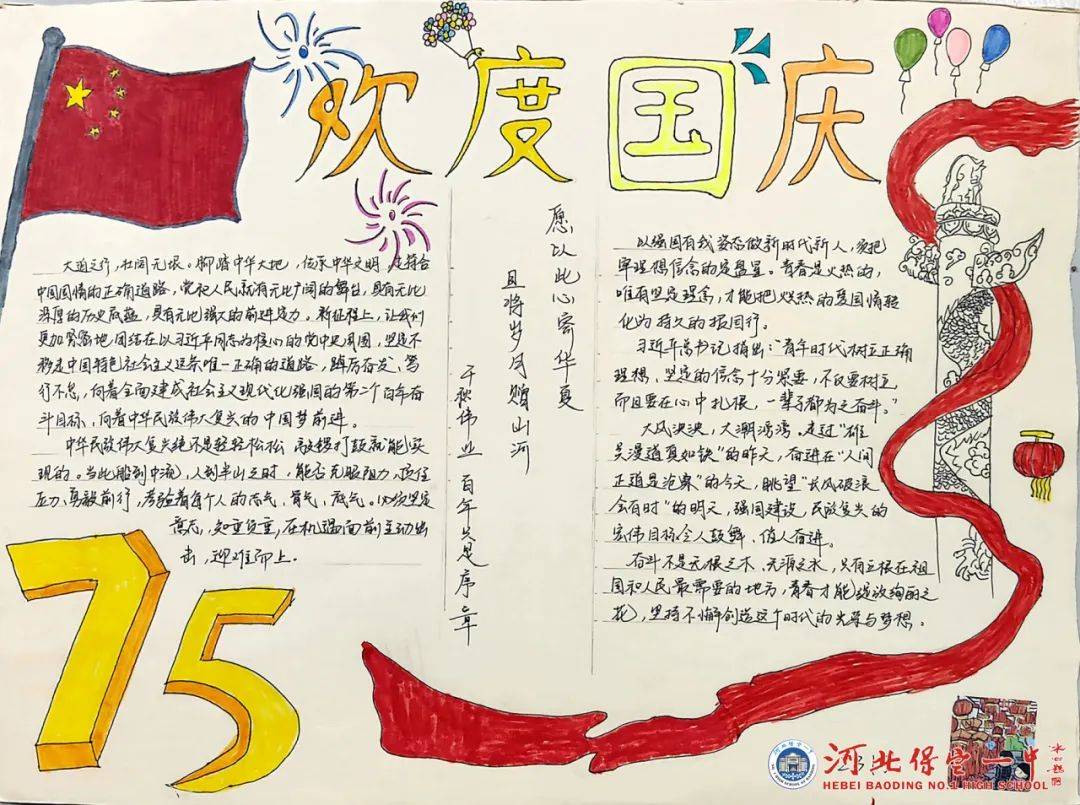 欢度国庆
大道之行,壮阔无垠。脚踏中华大地,传承中华文明,走符合
中国国情的正确道路,党和人民就有无比广阔的舞台,具有无比
深厚的历史底蕴,具有无比强大的前进定力。新征程上,让我们
更加紧密地团结在以习近平同志为核心的党中央周围,坚定不
移走中国特色社会主义这条唯一正确的道路,踔厉奋发、笃
行不怠,向着全面建成社会主义现代化强国的第二个百年奋
斗目标,向着中华民族伟大复兴的中国梦前进。
中华民族伟大复兴绝不是轻轻松松、敲锣打鼓就能实
现的。当此船到中流、人到半山之时,能否无惧阻力、顶住
压力、勇毅前行,考验着每个人的志气、骨气、底气。必须坚定
意志,知重负重,在机遇面前主动出
击,迎难而上。
75
愿以此心寄华夏
且将岁月赠山河
千秋伟业 百年只是序章
以强国有我姿态做新时代新人,务把
牢理想信念的定盘星。青春是火热的,
唯有坚定理念,才能把炽热的爱国情转
化为持久的报国行。
习近平总书记指出:“青年时代树立正确
理想、坚定的信念十分紧要,不仅要树立,
而且要在心中扎根,一辈子都为之奋斗。”
大风泱泱,大潮滂滂。走过“雄
关漫道真如铁”的昨天,奋进在“人间
正道是沧桑”的今天,眺望“长风破浪
会有时”的明天,强国建设、民族复兴的
宏伟目标令人鼓舞、催人奋进。
奋斗不是无根之木、无源之水,只有立根在祖
国和人民最需要的地方,青春才能绽放绚丽之
花,坚持不懈创造这个时代的光荣与梦想。
河北保定一中
HEBEI BAODING NO.1 HIGH SCHOOL